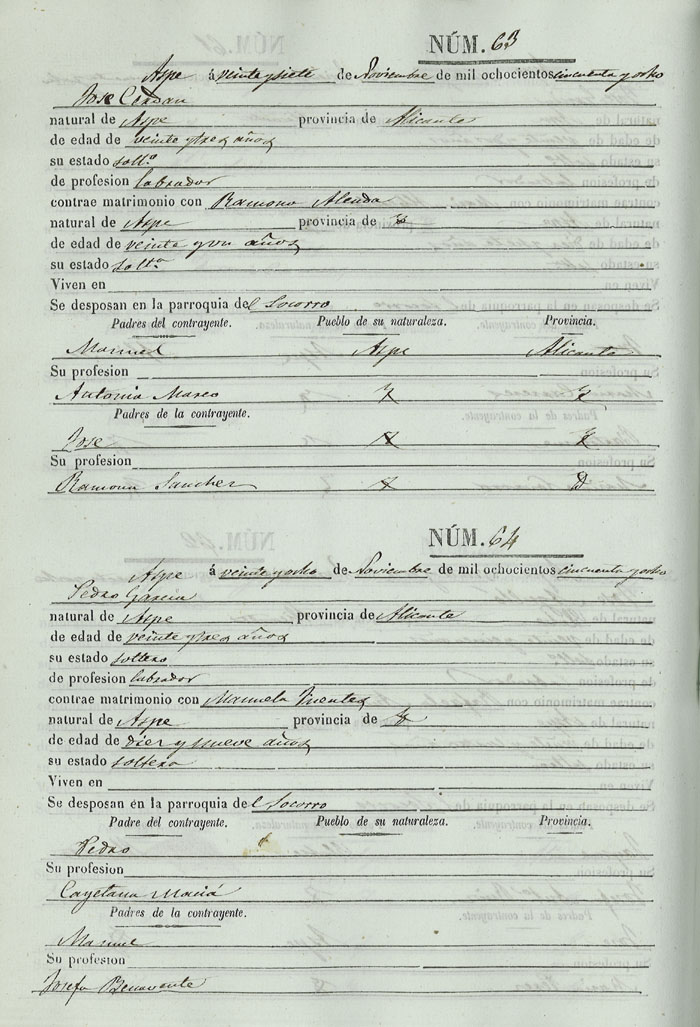 NÚM. 63
Aspe á veinte y siete de Noviembre de mil ochocientos cincuenta y ocho
Jose Cerdan
natural de Aspe provincia de Alicante
de edad de veinte y tres años
su estado soltº
de profesion labrador
contrae matrimonio con Ramona Alenda
natural de Aspe provincia de
de edad de veinte y un años
su estado soltª
Viven en
Se desposan en la parroquia del Socorro
Padres del contrayente. Pueblo de su naturaleza. Provincia.
Manuel Aspe Alicante
Su profesion
Antonia Maseo
Padres de la contrayente.
Jose
Su profesion
Ramona Sanchez
NÚM. 64
Aspe á veinte y ocho de Noviembre de mil ochocientos cincuenta y ocho
Pedro Garcia
natural de Aspe provincia de Alicante
de edad de veinte y tres años
su estado soltero
de profesion labrador
contrae matrimonio con Manuela
natural de Aspe provincia de
de edad de diez y nueve años
su estado soltera
Viven en
Se desposan en la parroquia del Socorro
Padre del contrayente. Pueblo de su naturaleza. Provincia.
Pedro
Su profesion
Cayetana Maciá
Padres de la contrayente.
Manuel
Su profesion
Josefa Benavente